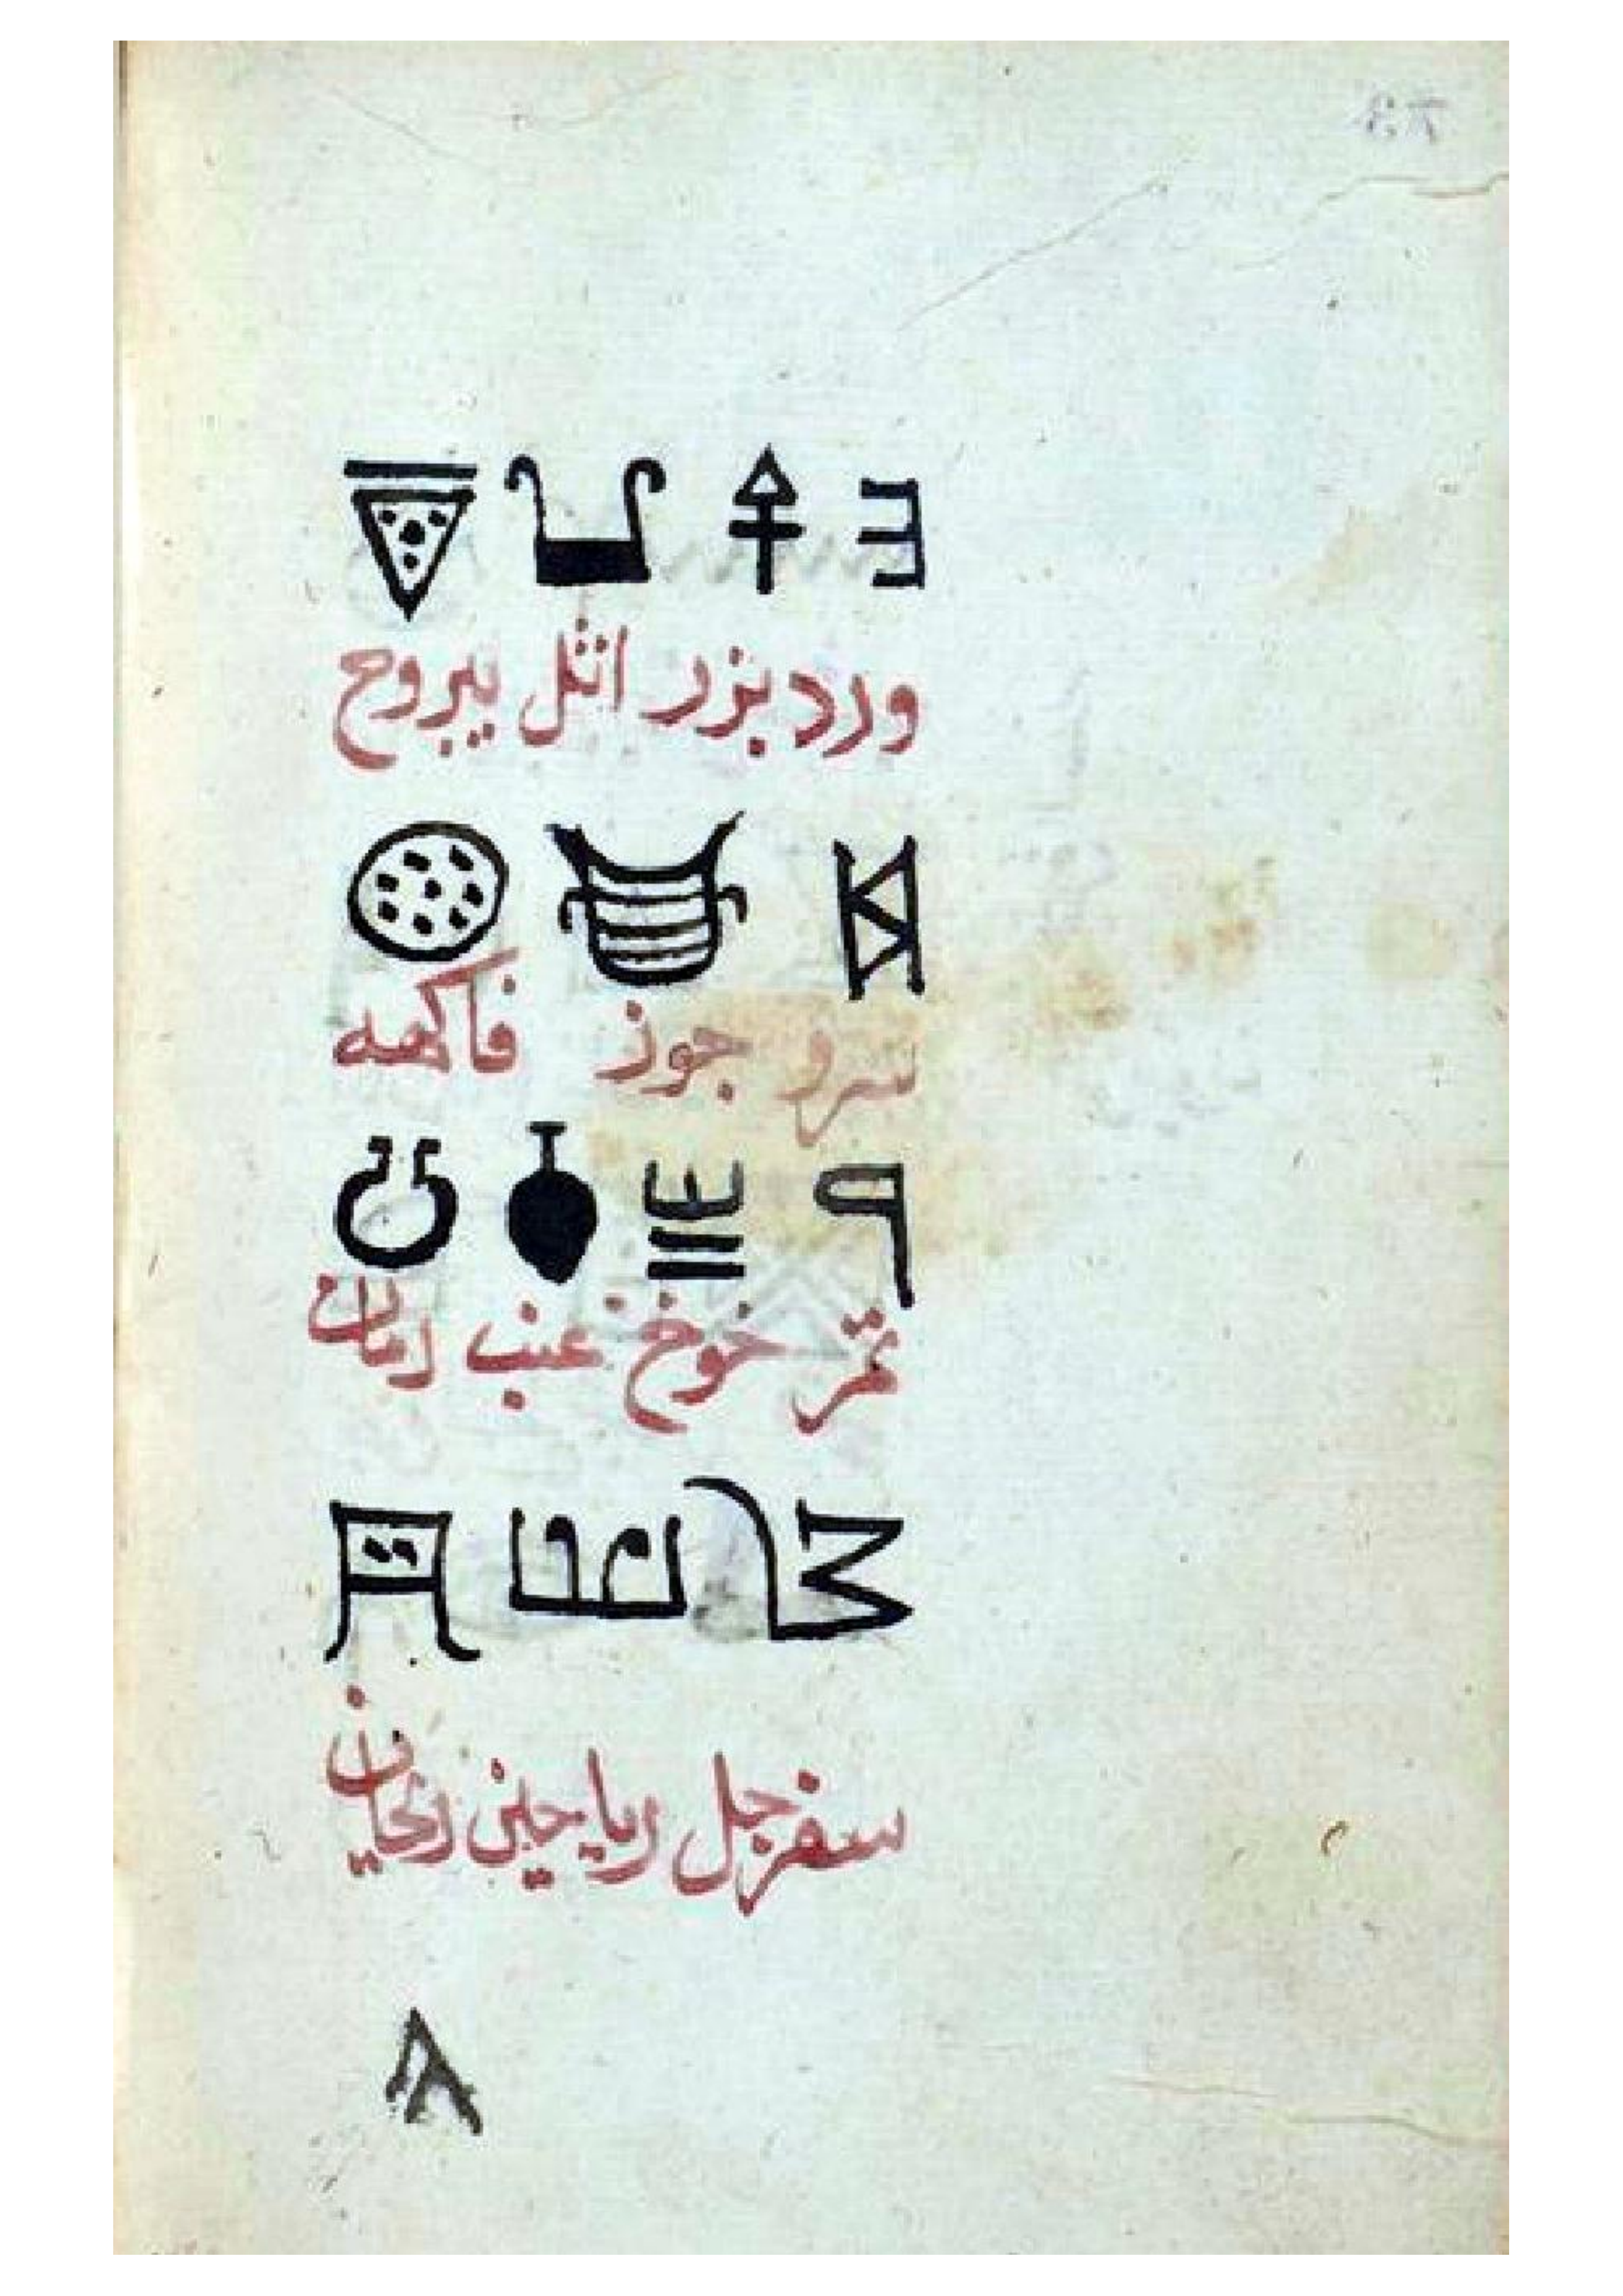 ورد بزر اثل يبروح
سرو جوز فاكهه
تمر خوخ عنب رمان
سفرجل رياحين ريحان